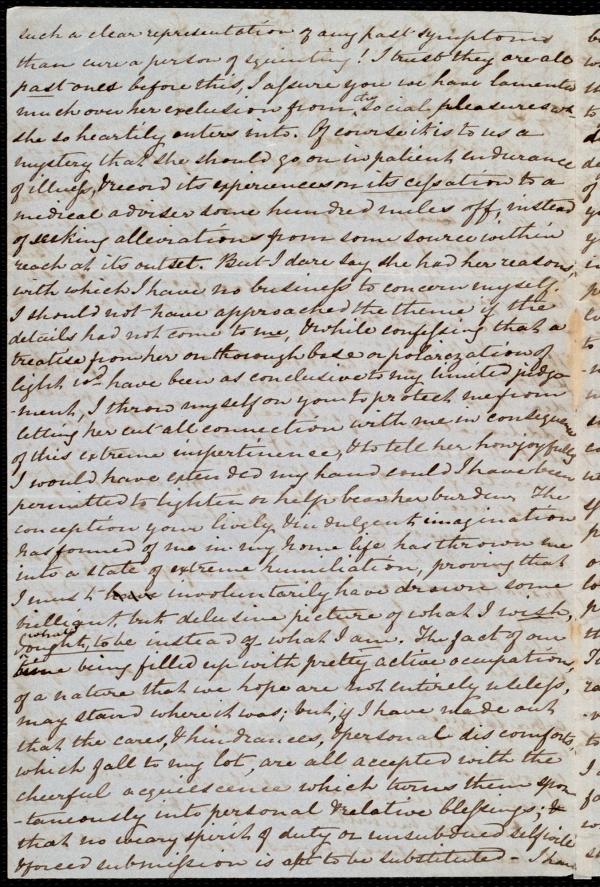 such a clear representation of any past symptoms
than cure a person of squinting! I trust they are all
past ones before this, I assure you we have lamented
much over her exclusion from the social pleasures wh
she so heartily enters into. Of course it is to us a
mystery that she should go on in patient endurance
of illness, & record its experiences on its cessation to a
medical adviser some hundred miles off, instead
of seeking alleviations from some source within
reach at its outset. But I dare say she had her reasons,
with which I have no business to concern myself.
I should not have approached the theme if the
details had not come to me, & while confessing that a
treatise from her on thorough base or polarization of
light wd have been as conclusive to my limited judge
-ment, I throw myself on you to protect me from
letting her cut all connection with me in consequence
of this extreme impertinence, & to tell her how joyfully
I would have extended my hand could I have been
permitted to lighten or help bear her burden. The
conception your lively & indulgent imagination
has formed of me in my home life has thrown me
into a state of extreme humiliation, proving that
I must have involuntarily have drawn some
brilliant but delusive picture of what I wish,
& what ought, to be instead of what I am. The fact of our
time being filled up with pretty active occupations,
of a nature that we hope are not entirely useless,
may stand where it was; but, if I have made out
that the cares, & hindrances, & personal discomforts,
which fall to my lot, are all accepted with the
cheerful acquiescence which turns them spon
-taneously into personal & relative blessings; &
that no weary spirit of duty or unsubdued selfwill
& forced submission is apt to be substituted - I have